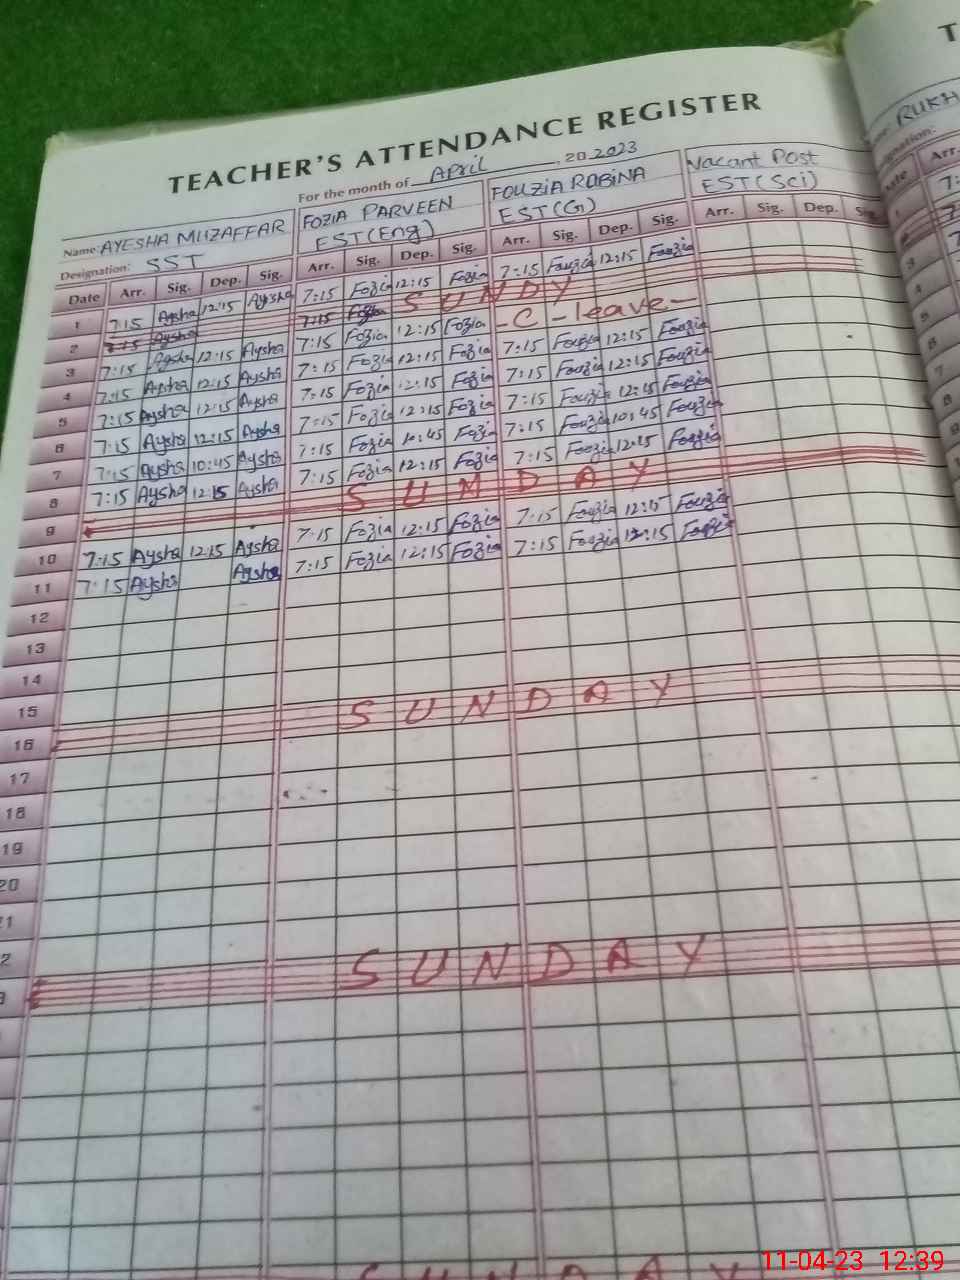 TEACHER'S ATTENDANCE REGISTER
For the month of April, 20 2023
Name: AYESHA MUZAFFAR FOZIA PARVEEN FOUZIA ROBINA Vacant Post RUKH
Designation: SST EST(Eng) EST(G) EST(Sci)
Date Arr. Sig. Dep. Sig. Arr. Sig. Dep. Sig. Arr. Sig. Dep. Sig. Arr. Sig. Dep.
1 7:15 Aysha 12:15 Aysha 7:15 Fozia 12:15 Fozia 7:15 Fouzia 12:15 Fouzia
2 7:15 Aysha 7:15 SUNDY
3 7:15 Aysha 12:15 Aysha 7:15 Fozia 12:15 Fozia -C-leave-
4 7:15 Aysha 12:15 Aysha 7:15 Fozia 12:15 Fozia 7:15 Fouzia 12:15 Fouzia
5 7:15 Aysha 12:15 Aysha 7:15 Fozia 12:15 Fozia 7:15 Fouzia 12:15 Fouzia
6 7:15 Aysha 12:15 Aysha 7:15 Fozia 12:15 Fozia 7:15 Fouzia 12:15 Fouzia
7 7:15 Aysha 10:45 Aysha 7:15 Fozia 10:45 Fozia 7:15 Fouzia 10:45 Fouzia
8 7:15 Aysha 12:15 Aysha 7:15 Fozia 12:15 Fozia 7:15 Fouzia 12:15 Fouzia
9 SUNDAY
10 7:15 Aysha 12:15 Aysha 7:15 Fozia 12:15 Fozia 7:15 Fouzia 12:15 Fouzia
11 7:15 Aysha Aysha 7:15 Fozia 12:15 Fozia 7:15 Fouzia 12:15 Fouzi
12
13
14
15
16 SUNDAY
17
18
19
20
21
2 SUNDAY
11-04-23 12:39